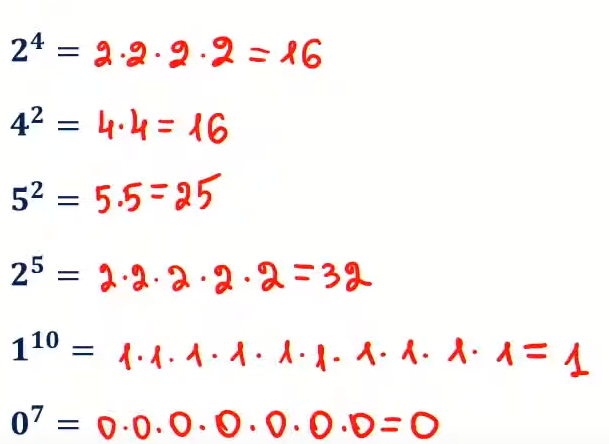 2⁴ = 2·2·2·2 = 16
4² = 4·4 = 16
5² = 5.5 = 25
2⁵ = 2·2·2·2·2 = 32
1¹⁰ = 1·1·1·1·1·1·1·1·1·1 = 1
0⁷ = 0·0·0·0·0·0·0 = 0